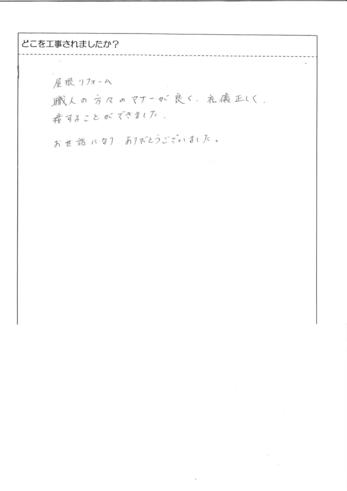 どこを工事されましたか？
屋根リフォーム
職人の方々のマナーが良く、礼儀正しく、
することができました。
お世話になり ありがとうございました。